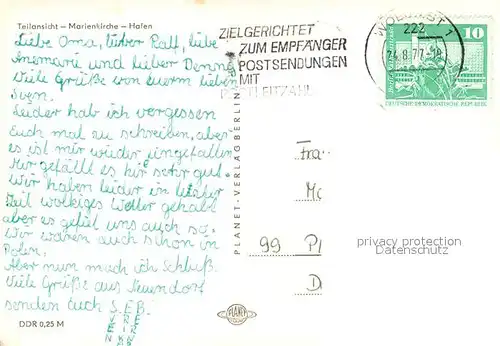 Teilansicht – Marienkirche – Hafen
Liebe Oma, lieber Ralf, liebe
Anemarie und lieber Denny
Viele Grüße von euerm lieben
Sven.
Leider hab ich vergessen
Euch mal zu schreiben, aber
es ist mir wieder eingefallen
Mir gefällt es hir sehr gut
Wir haben leider in letster
Zeit wolkiges Weller gehabt
aber es gefäl uns auch so.
Wir waren auch schon in
Polen.
Aber nun mach ich Schluß.
Viele Grüße aus Neuendorf
senden Euch S.E.B.
VEN
DDR 0,25 M
PLANET-VERLAG BERLIN
PLANET
ZIELGERICHTET
ZUM EMPFÄNGER
POSTSENDUNGEN
MIT
POSTLEITZAHL
WOLGAST 1
222
24.8.77-18
10
DEUTSCHE DEMOKRATISCHE REPUBLIK
Frau
99 Pl
D
privacy protection
Datenschutz